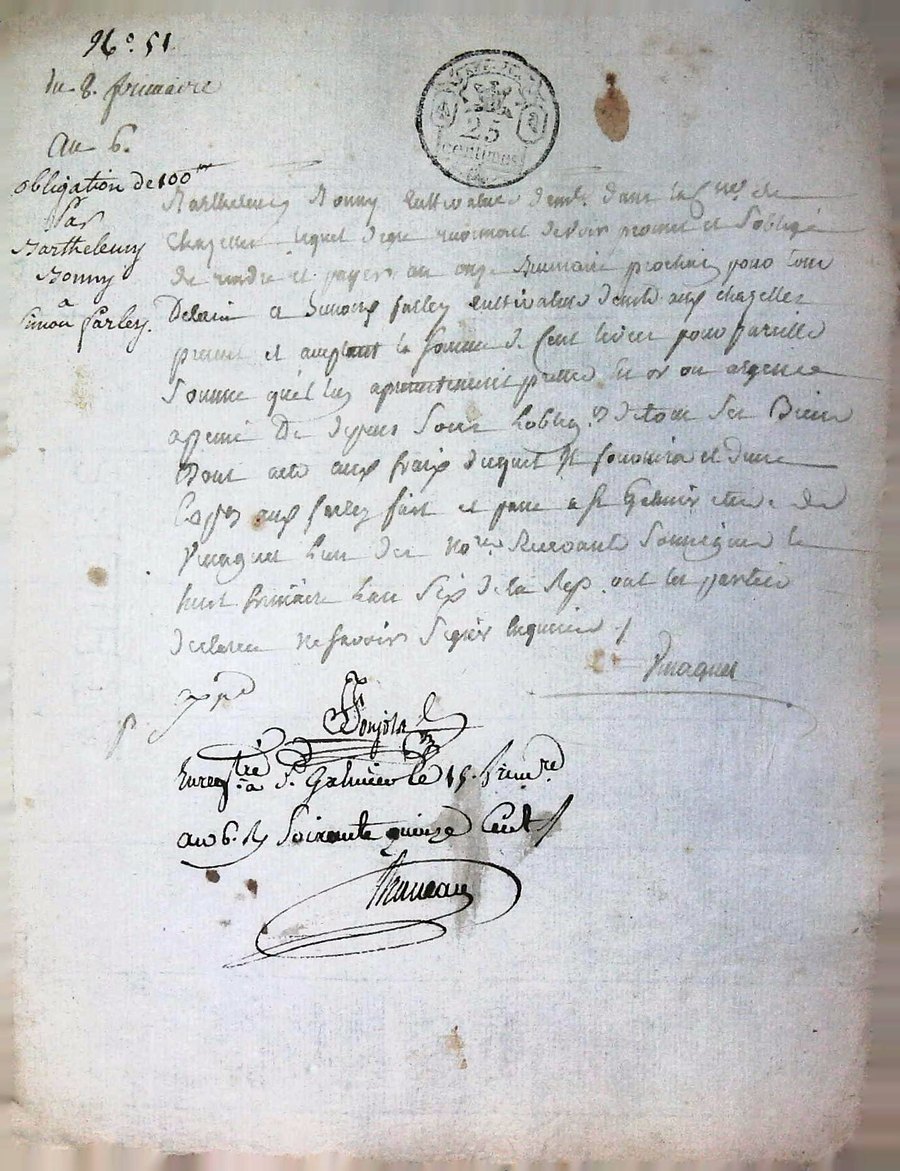 No. 51.
du 8. frimaire
An 6.
obligation de 100tt
Par
Barthelemy
Bonny
a
Simon Carley.
25
centimes
Barthelemy Bonny cultivateur demt. dans la Cne. de
Chazelles lequel de gré reconnoit devoir promet et s'oblige
de rendre et payer au onze brumaire prochain pour tout
Delain a Simon Carley cultivateur demt. aux chazelles
present et acceptant la somme de Cent livres pour pareille
somme qu'il luy a presentement pretté en or ou argent a
appeine De depens sous l'obligon. de tous ses Biens
Dont acte aux fraix duquel il fournira et d'une
aux Carley fait et passé a St Galmier etude de
Vinagnet l'un des nores. Recevant soussigné le
huit frimaire l'an six de la Rep. ont les parties
declaré ne savoir signer enquis. /
Vinagnet
expd
Bonjola
Enregtré a St. Galmier le 15. frimre.
an 6. R Soixante quinze Cent /
Bruneau